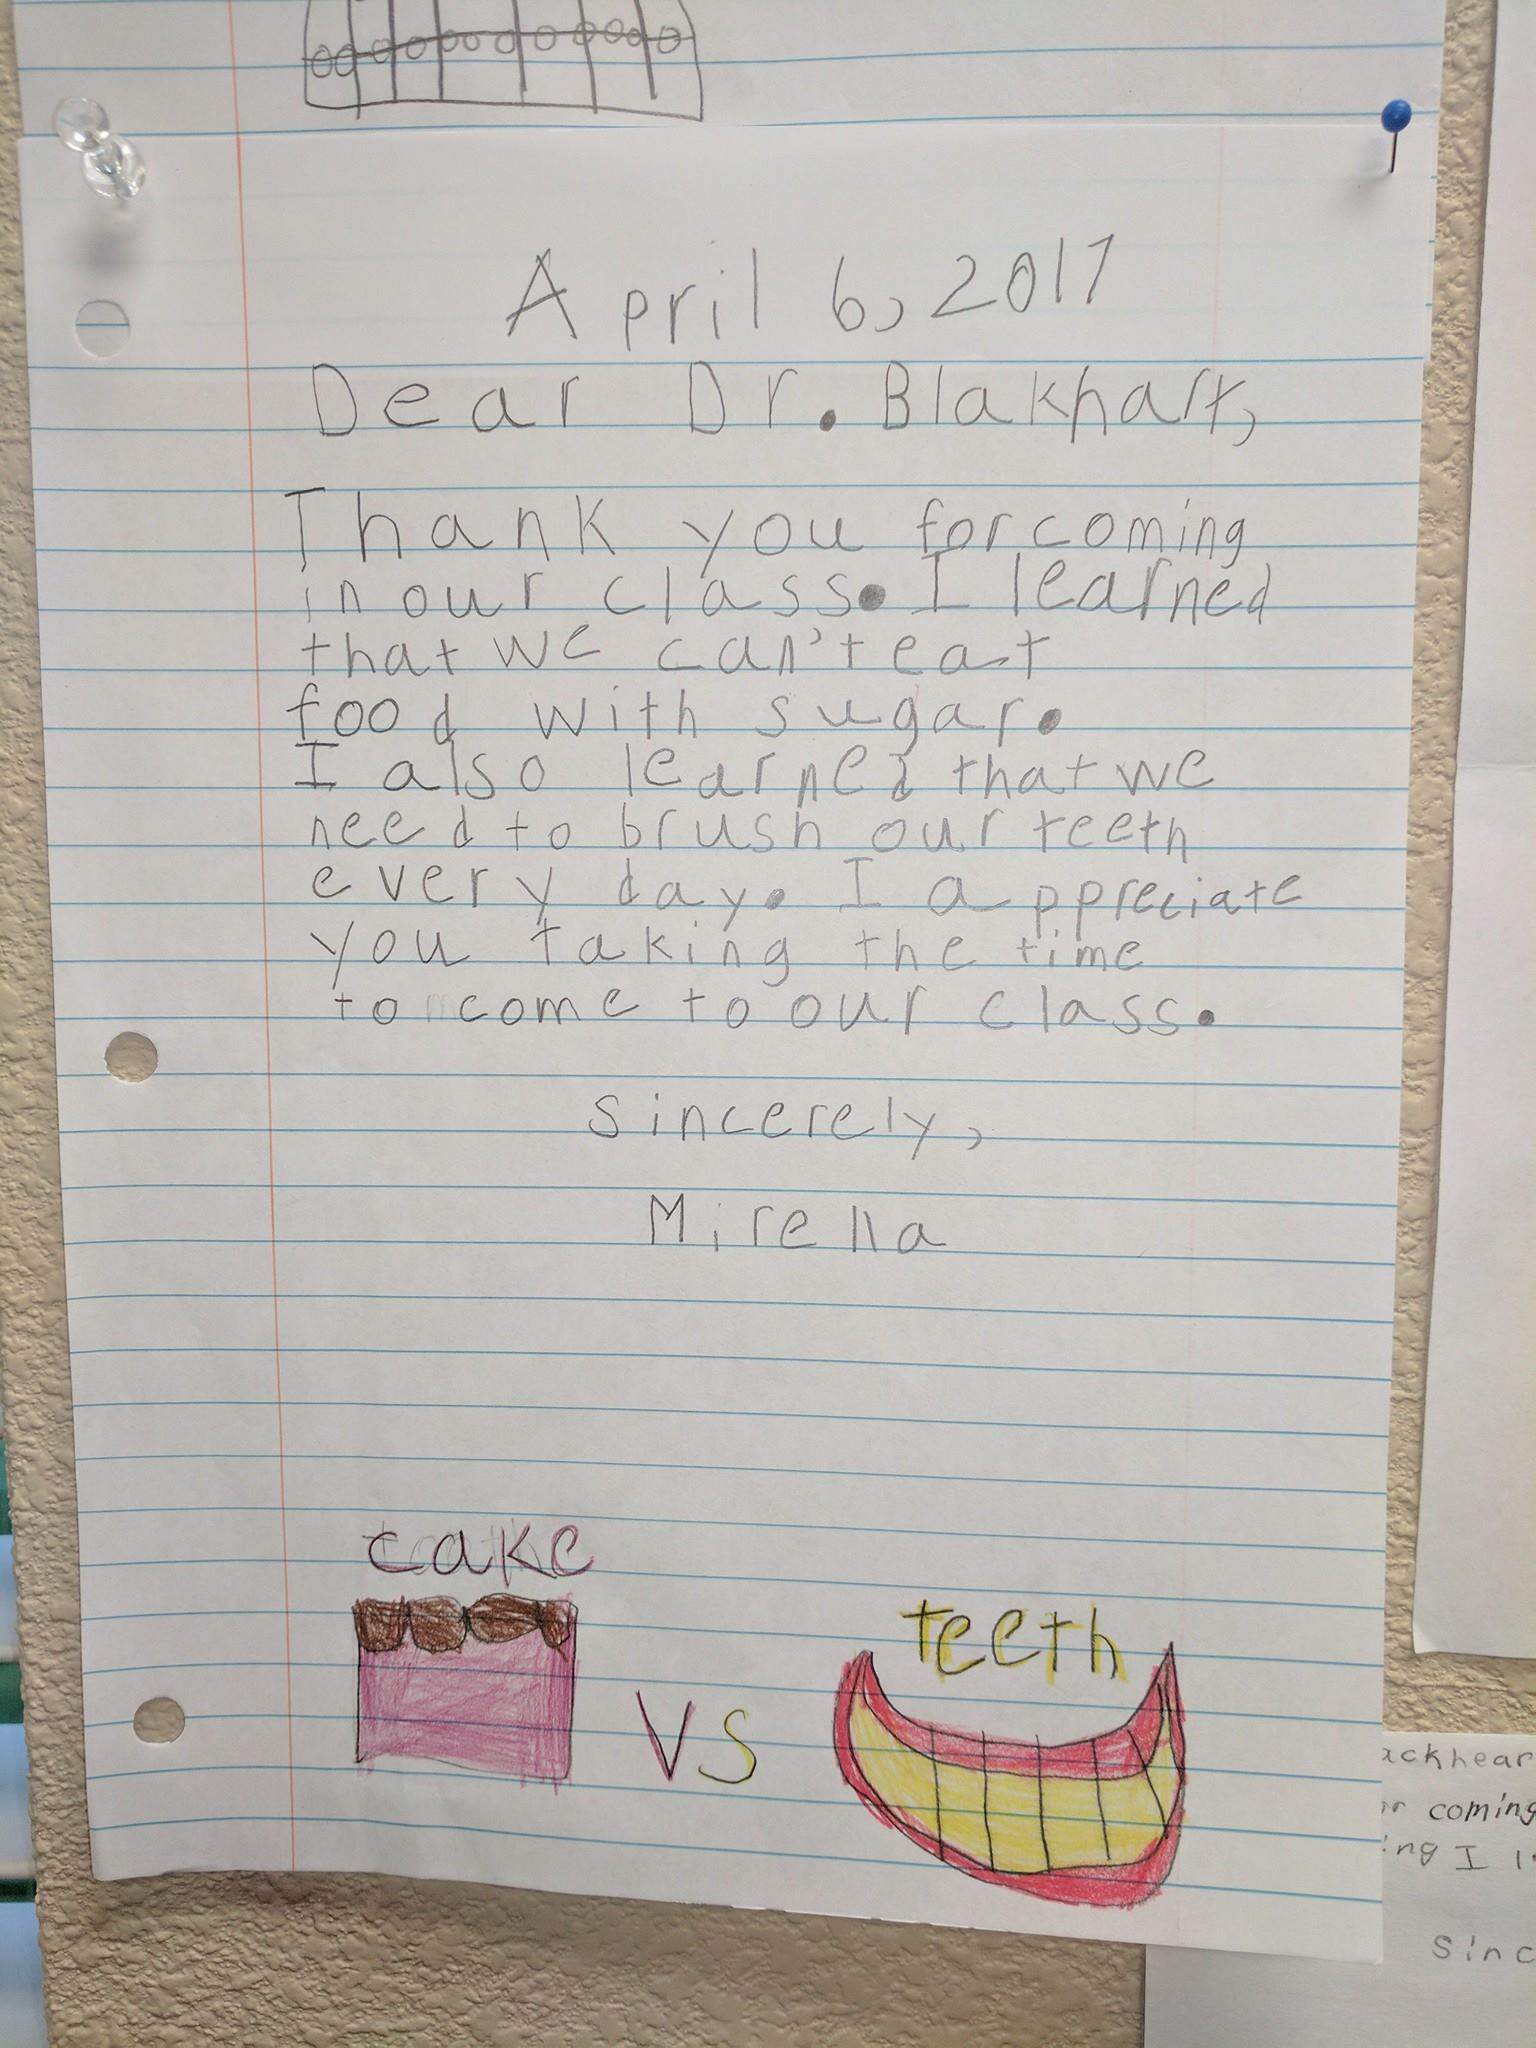 April 6, 2017
Dear Dr. Blakhart,
Thank you for coming
in our class. I learned
that we can't eat
food with sugar.
I also learned that we
need to brush our teeth
every day. I appreciate
you taking the time
to come to our class.
sincerely,
Mirella
cake
teeth
VS
ackhear
coming
ing I l
Sinc